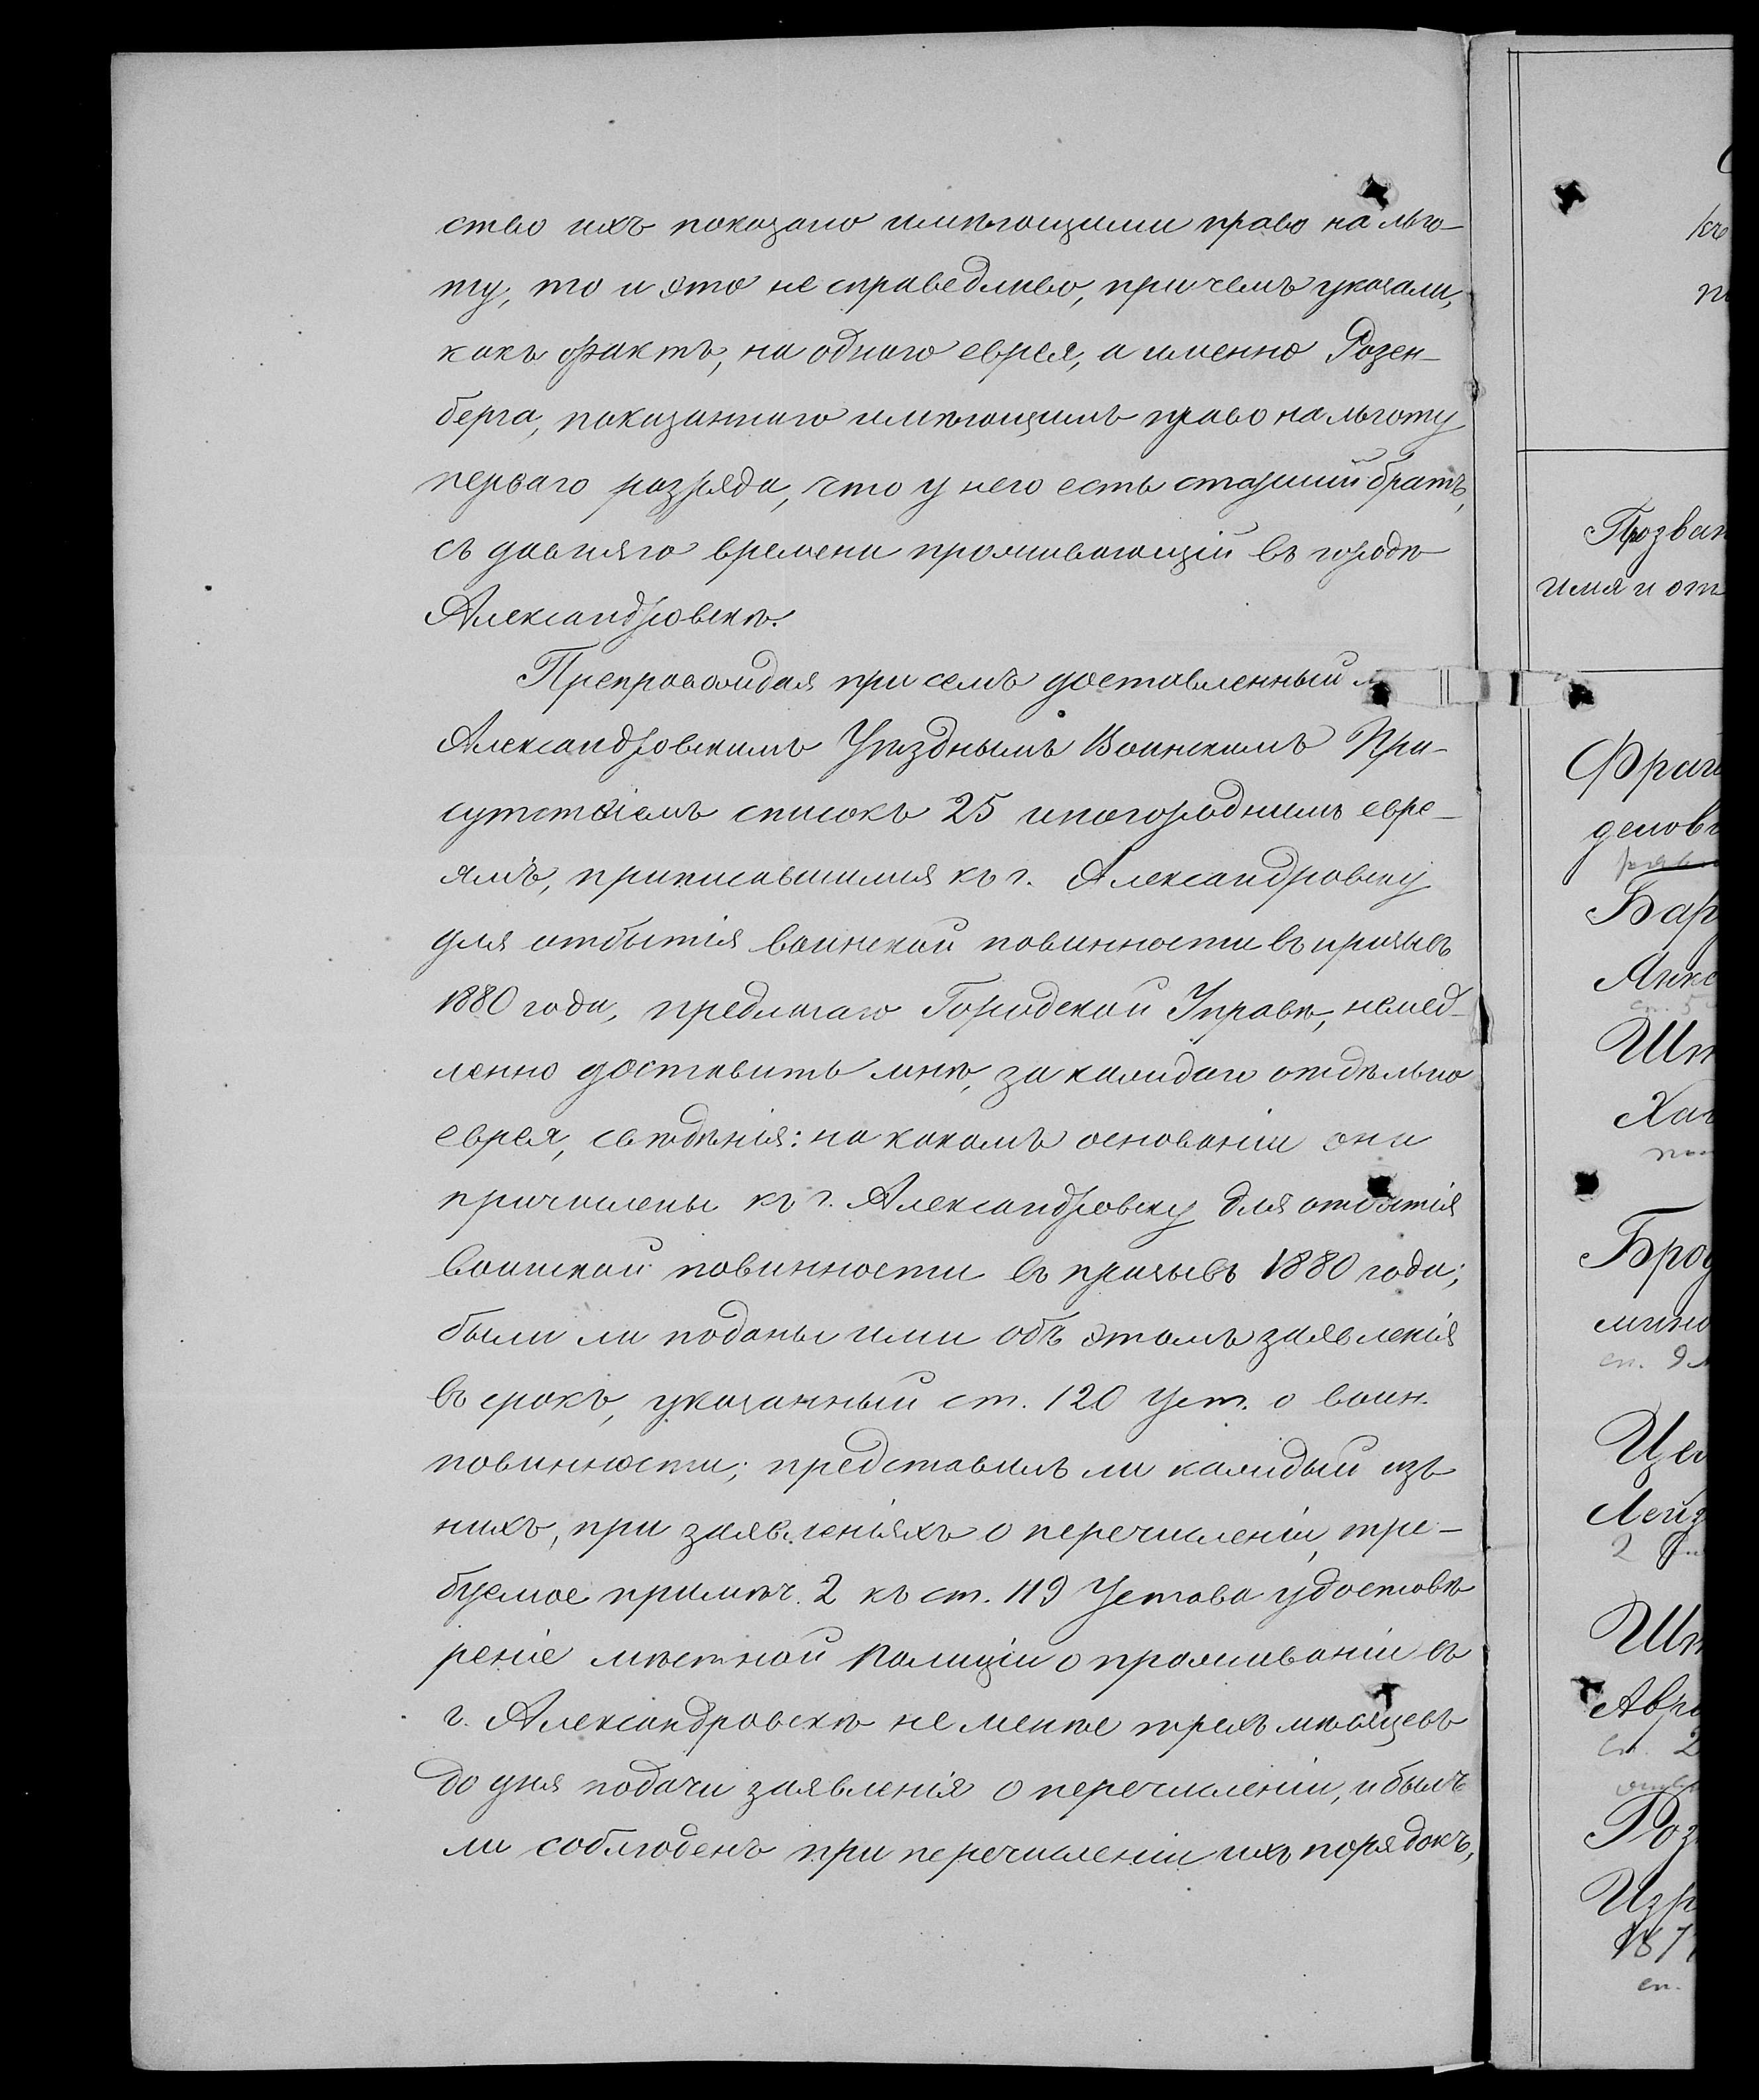 ство ихъ показано имѣющими право на льго-
ту, то и это не справедливо, при чемъ указали,
какъ фактъ, на одного еврея, а именно Розен-
берга, показаннаго имѣющимъ право на льготу
перваго разряда, что у него есть старшій братъ,
съ давняго времени проживающій въ городѣ
Александровскѣ.
Препровождая при семъ доставленный мнѣ
Александровскимъ Уѣзднымъ Воинскимъ При-
сутствіемъ списокъ 25 иногороднимъ евре-
ямъ, приписавшимся къ г. Александровску
для отбытія воинской повинности въ призывъ
1880 года, предлагаю Городской Управѣ, немед-
ленно доставить мнѣ, за каждаго отдѣльно
еврея, свѣдѣнія: на какомъ основаніи они
причислены къ г. Александровску для отбытія
воинской повинности въ призывъ 1880 года;
были ли поданы ими объ этомъ заявленія
въ срокъ, указанный ст. 120 Уст. о воин.
повинности; представилъ ли каждый изъ
нихъ, при заявленіяхъ о перечисленіи, тре-
буемое примѣч. 2 къ ст. 119 Устава удостовѣ
реніе мѣстной Полиціи о проживаніи въ
г. Александровскѣ не менѣе трехъ мѣсяцевъ
до дня подачи заявленія о перечисленіи, и былъ
ли соблюденъ при перечисленіи ихъ порядокъ,
къ
Прозван
имя и от
Фрай
деловъ
Бар
Янке
Шт
Ха
Брод
мино
сп. 9
Цел
Лейз
2
Шт
Авра
сп. 2
Роз
Изр
187
сп.